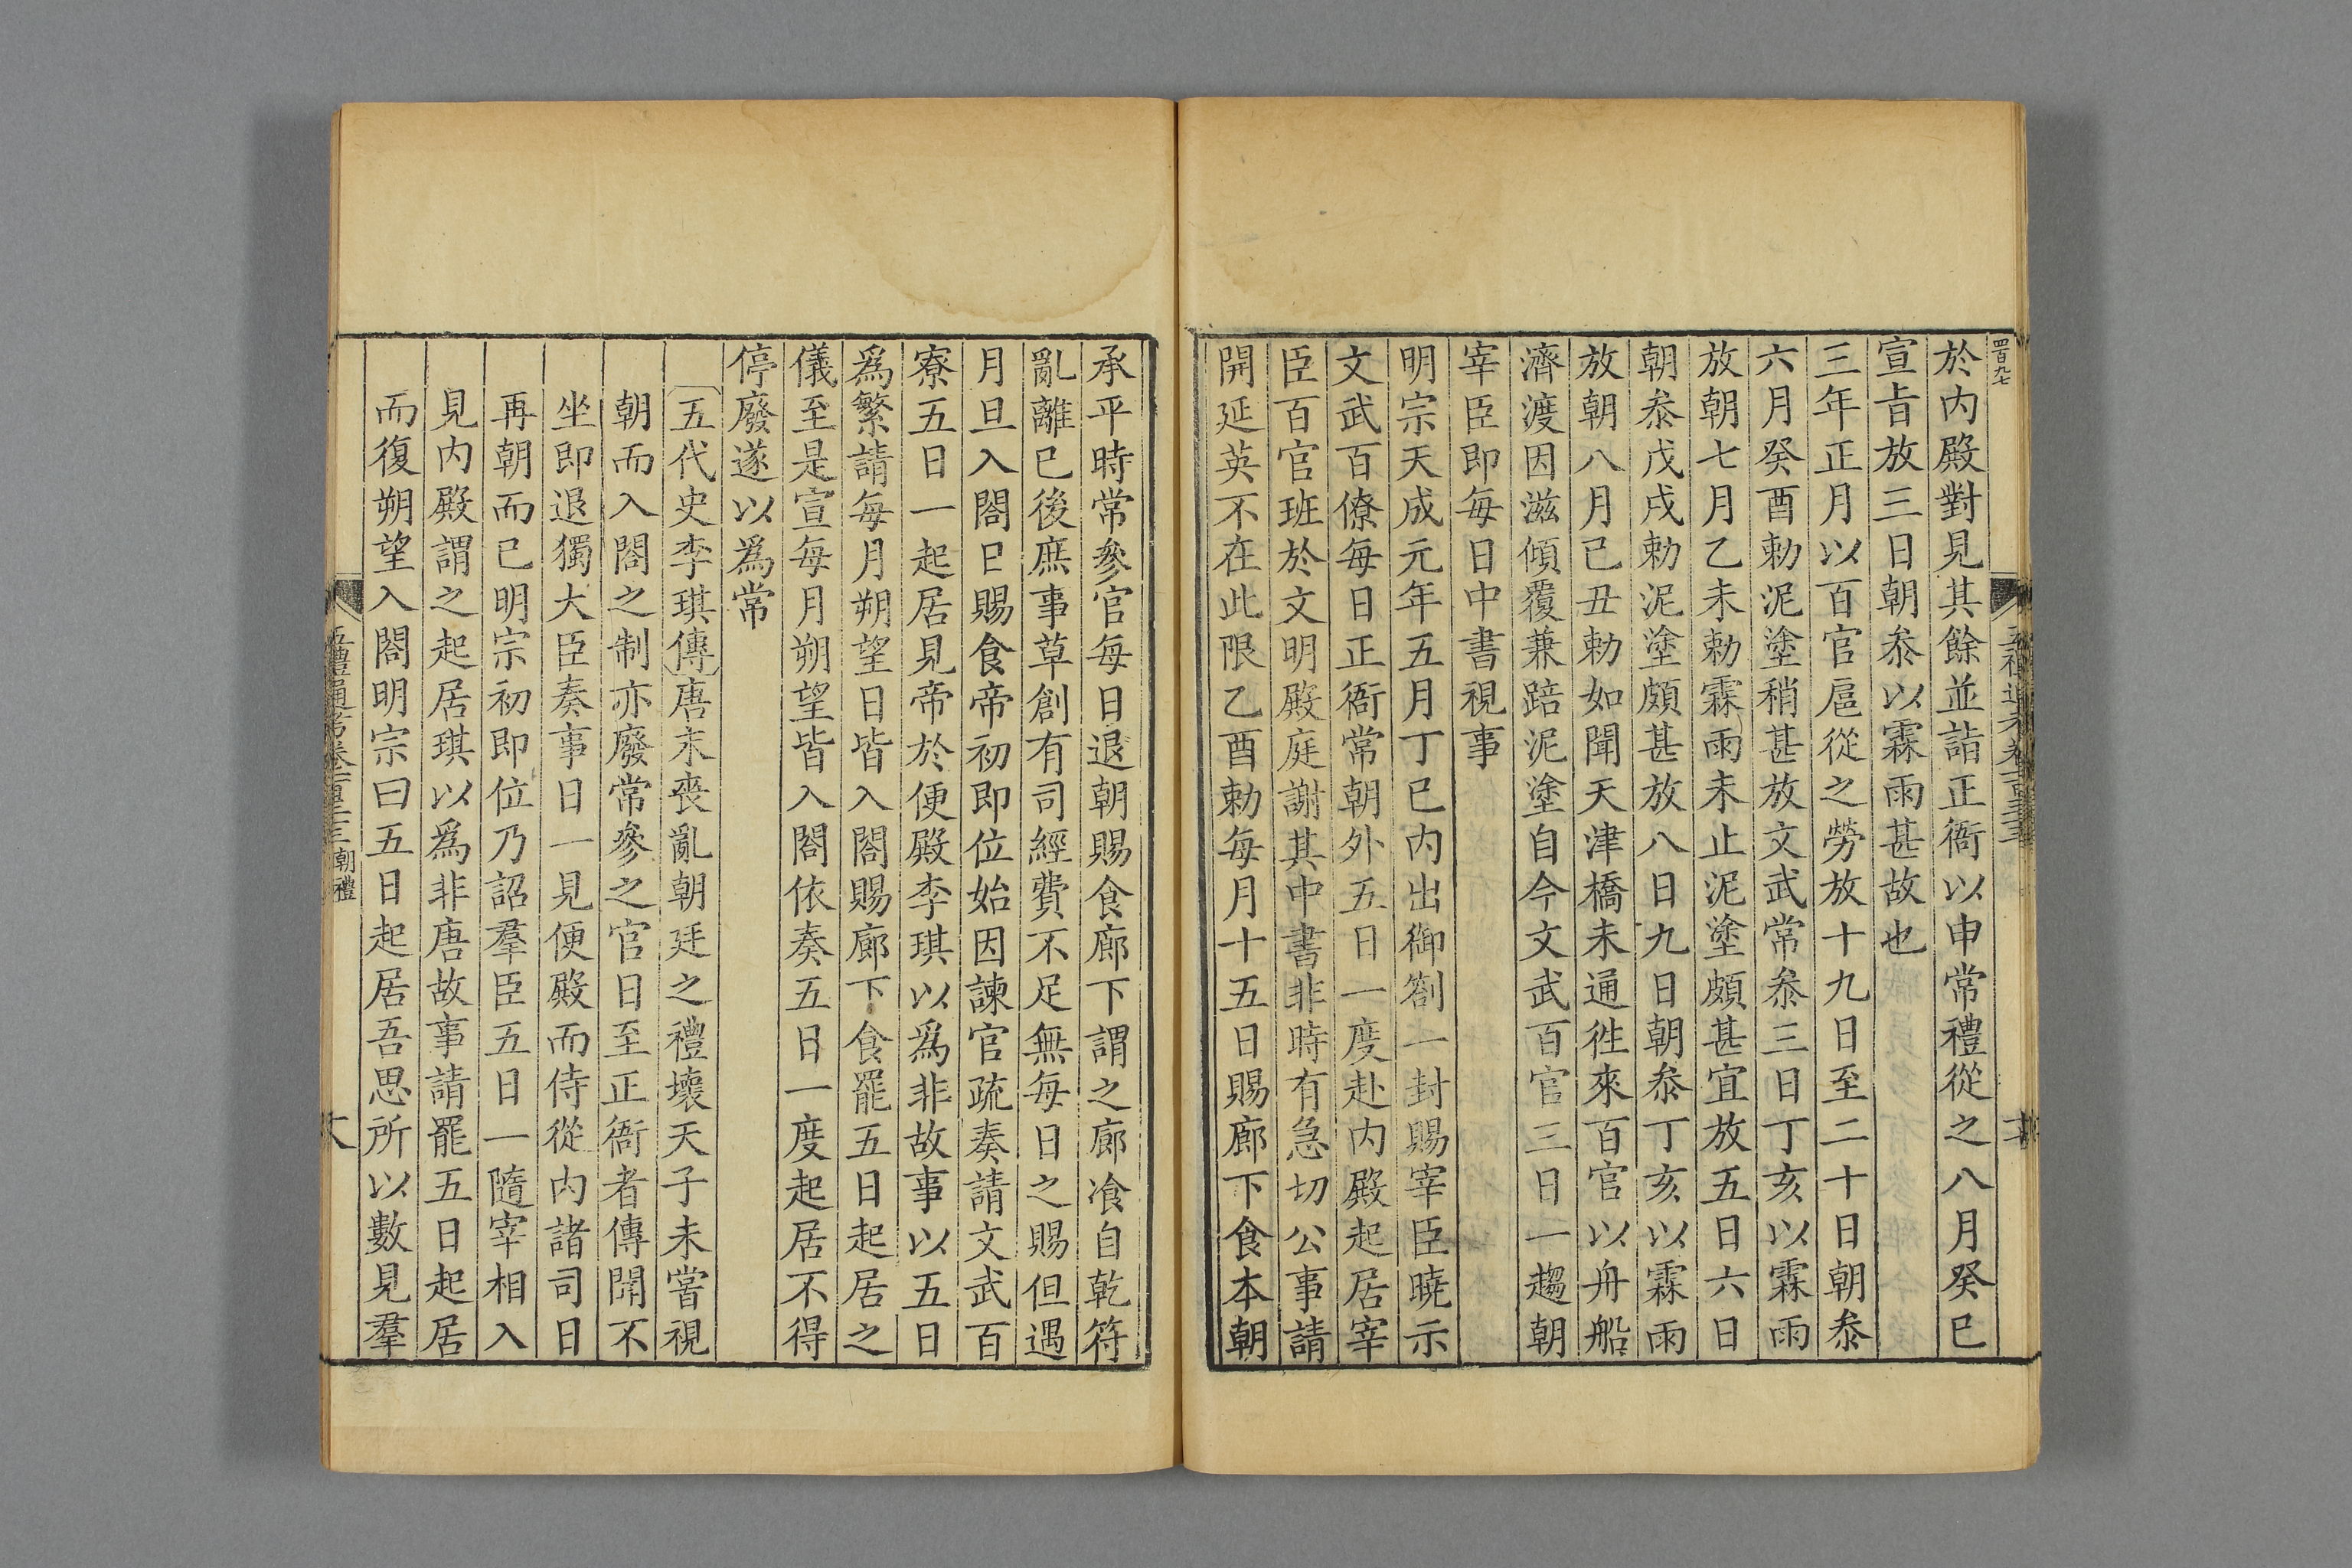 四百九七
於内殿對見其餘並詣正衙以申常禮從之八月癸巳
宣㫖放三日朝叅以霖雨甚故也
三年正月以百官扈從之勞放十九日至二十日朝叅
六月癸酉勅泥塗稍甚放文武常叅三日丁亥以霖雨
放朝七月乙未勅霖雨未止泥塗頗甚宜放五日六日
朝叅戊戌勅泥塗頗甚放八日九日朝叅丁亥以霖雨
放朝八月己丑勅如聞天津橋未通徃來百官以舟船
濟渡因滋傾覆兼踣泥塗自今文武百官三日一趨朝
宰臣即每日中書視事
明宗天成元年五月丁巳内出御劄一封賜宰臣曉示
文武百僚每日正衙常朝外五日一度赴内殿起居宰
臣百官班於文明殿庭謝其中書非時有急切公事請
開延英不在此限乙酉勅每月十五日賜廊下食本朝
承平時常參官每日退朝賜食廊下謂之廊飡自乾符
亂離已後庶事草創有司經費不足無每日之賜但遇
月旦入閤日賜食帝初即位始因諫官疏奏請文武百
寮五日一起居見帝於便殿李琪以爲非故事以五日
爲繁請每月朔望日皆入閤賜廊下食罷五日起居之
儀至是宣每月朔望皆入閤依奏五日一度起居不得
停廢遂以爲常
〔五代史李琪傳〕唐末喪亂朝廷之禮壞天子未嘗視
朝而入閤之制亦廢常參之官日至正衙者傳聞不
坐即退獨大臣奏事日一見便殿而侍從内諸司日
再朝而已明宗初即位乃詔羣臣五日一隨宰相入
見内殿謂之起居琪以爲非唐故事請罷五日起居
而復朔望入閤明宗曰五日起居吾思所以數見羣
五禮通考卷一百三十三 朝禮